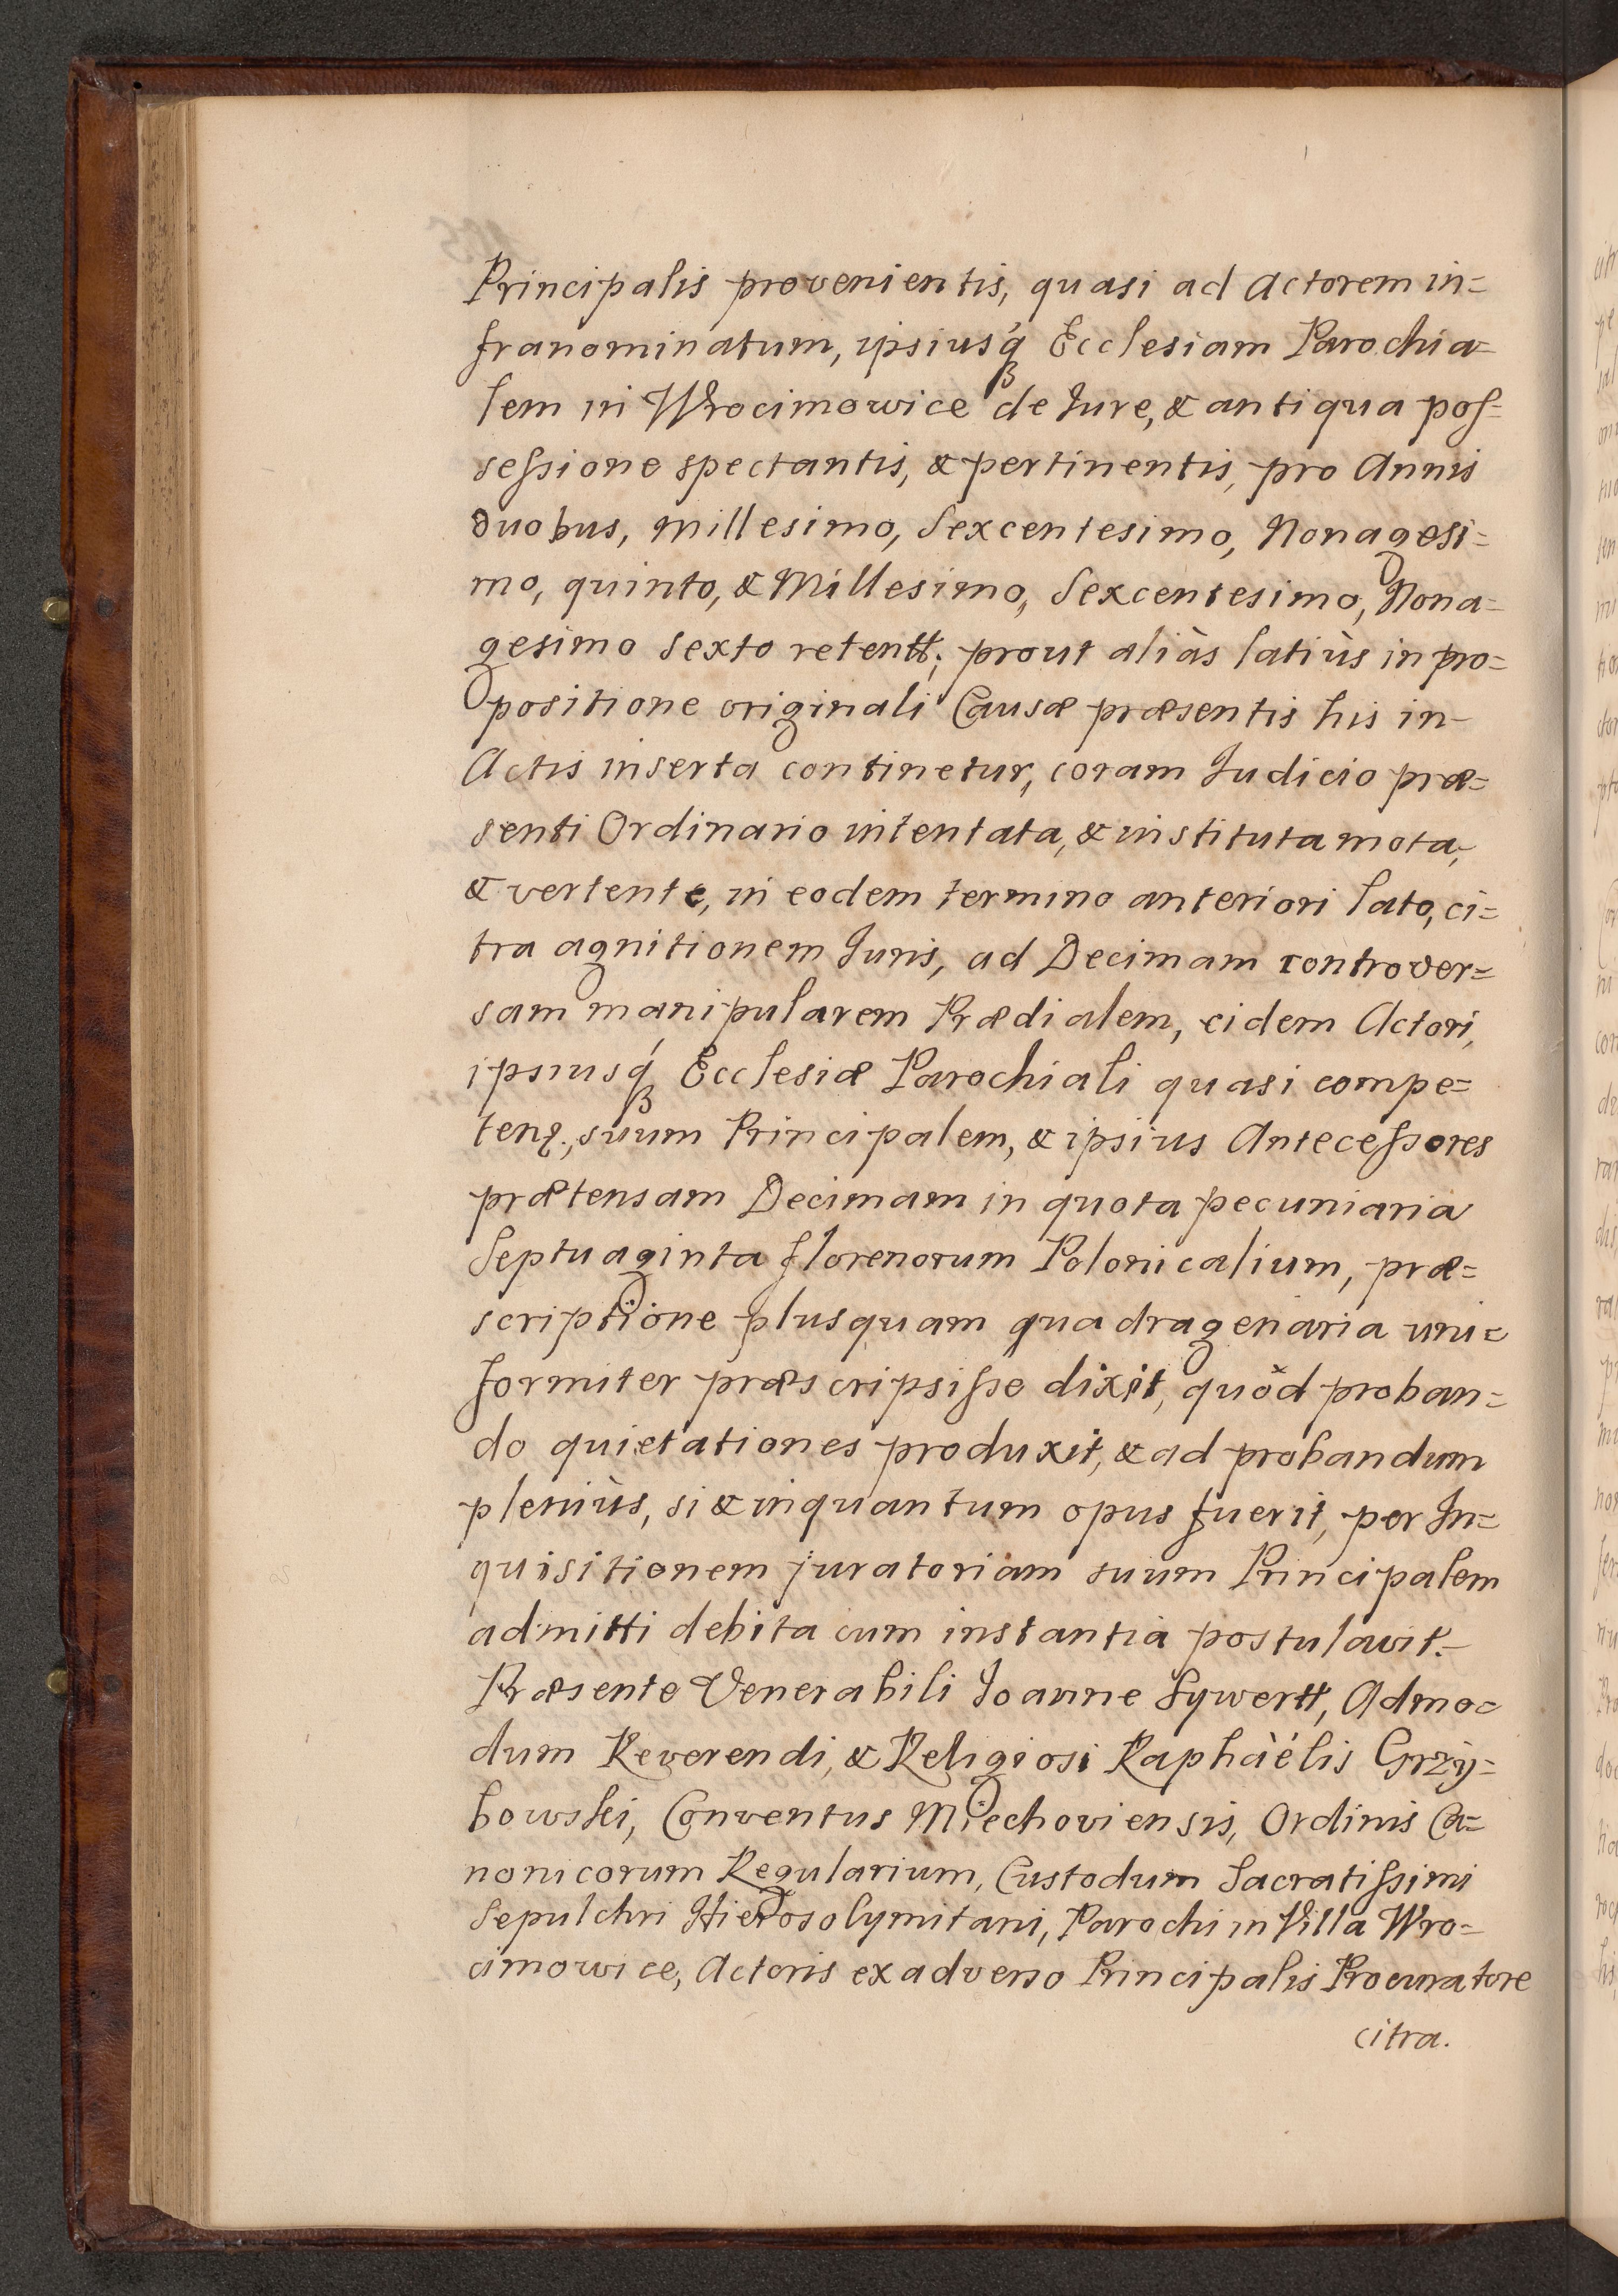 Principalis provenientis, quasi ad Actorem in=
franominatum, ipsiusq́ꝫ Ecclesiam Parochia=
lem in Wrocimowice de Jure, & antiqua pos=
sessione spectantis, & pertinentis, pro Annis
duobus, Millesimo, Sexcentesimo, Nonagesi=
mo, quinto, & Millesimo, Sexcentesimo, Nona=
gesimo sexto retentt; prout aliàs latiùs in pro=
positione originali Causæ præsentis his in-
Actis inserta continetur, coram Judicio præ=
senti Ordinario intentata, & instituta mota,
& vertente, in eodem termino anteriori lato, ci=
tra agnitionem Juris, ad Decimam controver=
sam manipularem Prædialem, eidem Actori,
ipsiusq́ꝫ Ecclesiæ Parochiali quasi compe=
tenꝗ, suum Principalem, & ipsius Antecessores
prætensam Decimam in quota pecuniaria
Septuaginta florenorum Polonicalium, præ=
scriptione plusquam quadragenaria uni=
formiter præscripsisse dixit, quòd proban=
do quietationes produxit, & ad probandum
pleniùs, si & inquantum opus fuerit, per In=
quisitionem juratoriam suum Principalem
admitti debita cum instantia postulavit.-
Præsente Venerabili Joanne Sywertt, Admo=
dum Reverendi, & Religiosi Raphàélis Grzy=
bowski, Conventus Miechoviensis, Ordinis Ca=
nonicorum Regularium, Custodum Sacratissimi
Sepulchri Hierosolymitani, Parochi in Villa Wro=
cimowice, Actoris ex adverso Principalis Procuratore
citra.